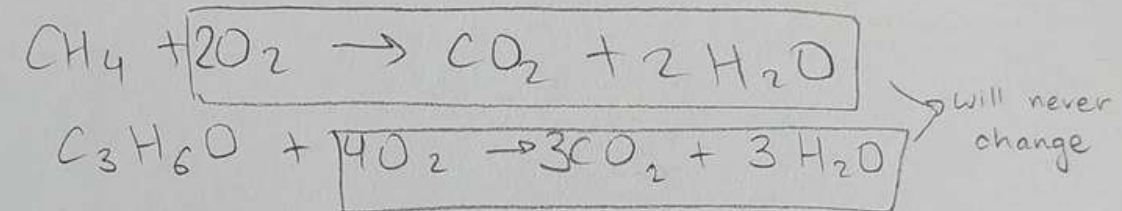 CH₄ + 2O₂ → CO₂ + 2H₂O
C₃H₆O + 4O₂ → 3CO₂ + 3H₂O
will never
change